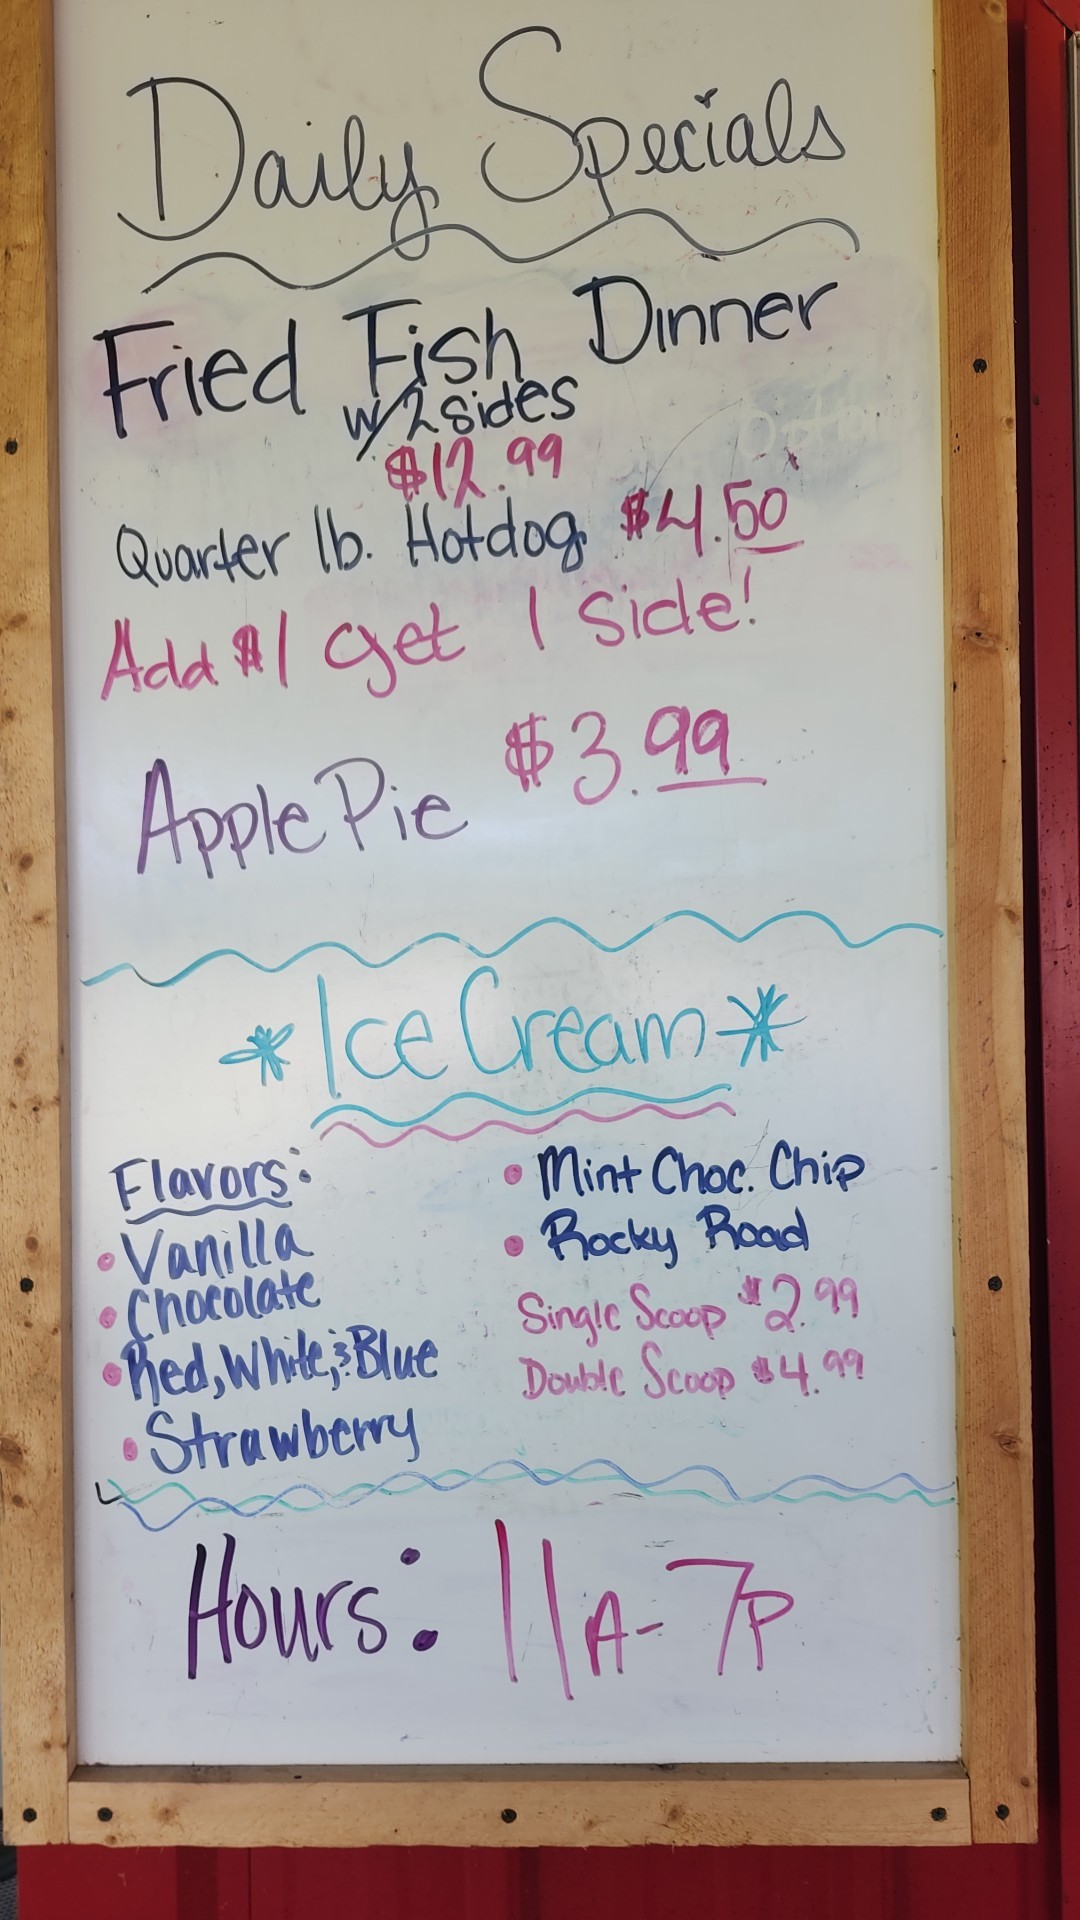 Daily Specials
Fried Fish Dinner
w/2 sides
$12.99
Quarter lb. Hotdog $4.50
Add $1 get 1 side!
Apple Pie $3.99
*Ice Cream*
Flavors:
• Vanilla
• Chocolate
• Red, White, & Blue
• Strawberry
• Mint Choc. Chip
• Rocky Road
Single Scoop $2.99
Double Scoop $4.99
Hours: 11A-7P